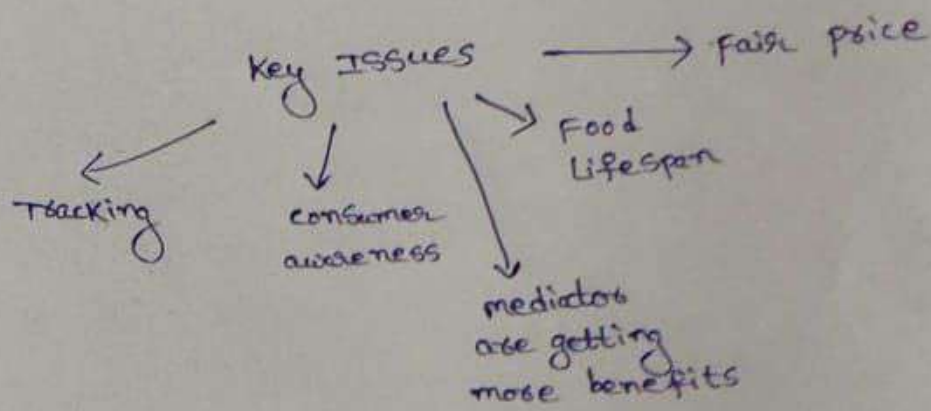 Key Issues
Fair price
Food
Lifespan
Tracking
consumer
awareness
mediator
are getting
more benefits